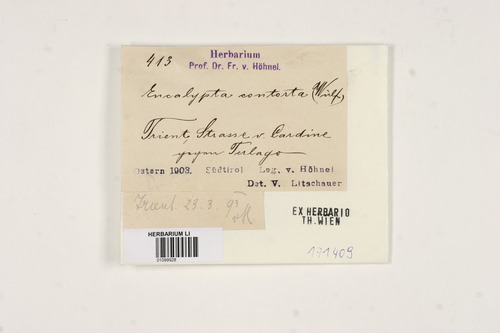 413
Herbarium
Prof. Dr. Fr. v. Höhnel.
Encalypta contorta (Wulf.)
Trient, Strasse v. Cardine
gegen Terlago
Ostern 1903. Südtirol Leg. v. Höhnel
Det. V. Litschauer
Trient. 23. 3. 93
EX HERBARIO
TH. WIEN
HERBARIUM LI
171409